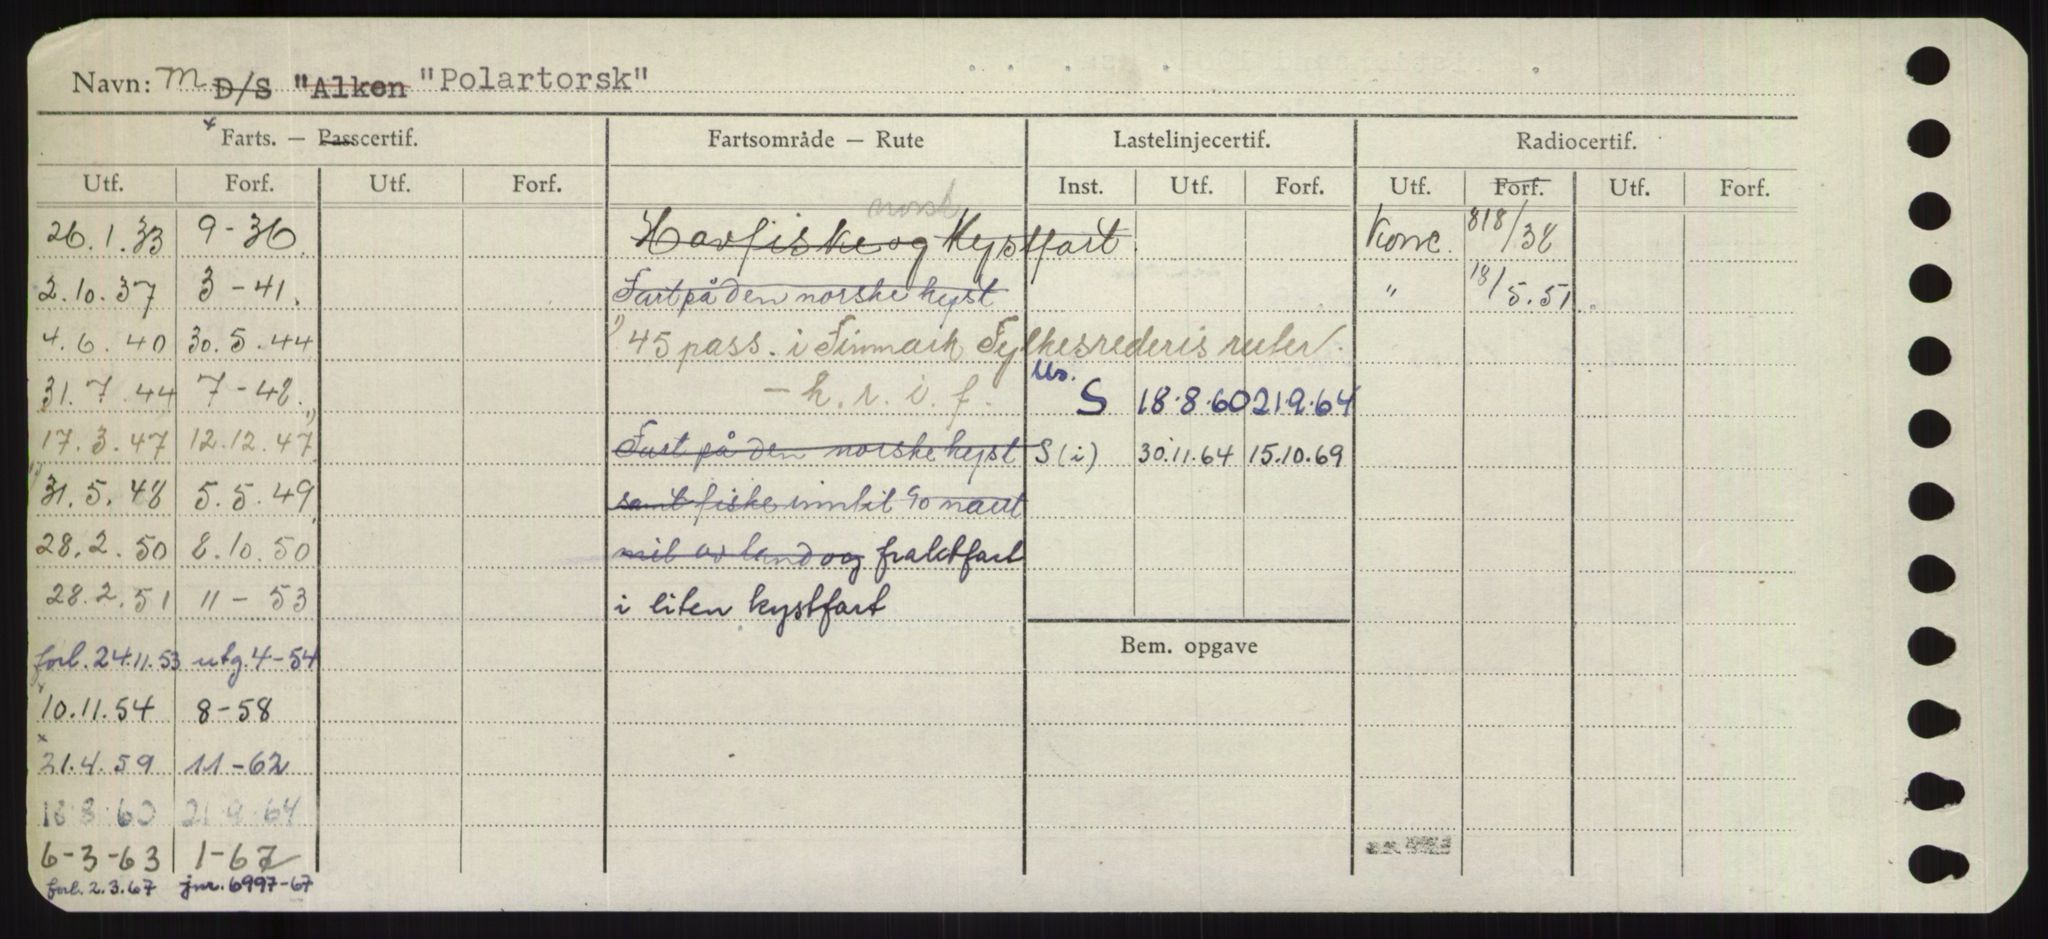 Navn: M D/S "Alken "Polartorsk"
* Farts. — Passcertif. Fartsområde — Rute Lastelinjecertif. Radiocertif.
Utf. Forf. Utf. Forf. Inst. Utf. Forf. Utf. Forf. Utf. Forf.
norsk
26.1.33 9-36. Havfiske og Kystfart. Konc. 818/38
2.10.37 3-41. Fart på den norske kyst " 18/5.51
4.6.40 30.5.44 1) 45 pass. i Finmark Fylkesrederis ruter.
31.7.44 7-48. - h.r.i.f. S 18.8.60 21.9.64
17.3.47 12.12.47 1) Fart på den norske kyst S (i) 30.11.64 15.10.69
31.5.48 5.5.49 samt fiske inntil 90 naut
28.2.50 8.10.50 mil av land og fraktfart
28.2.51 11-53 i liten kystfart
forl. 24.11.53 utg. 4-54 Bem. opgave
10.11.54 8-58
*
21.4.59 11-62
18.8.60 21.9.64
6-3-63 1-67
forl. 2.3.67 jnr. 6997-67